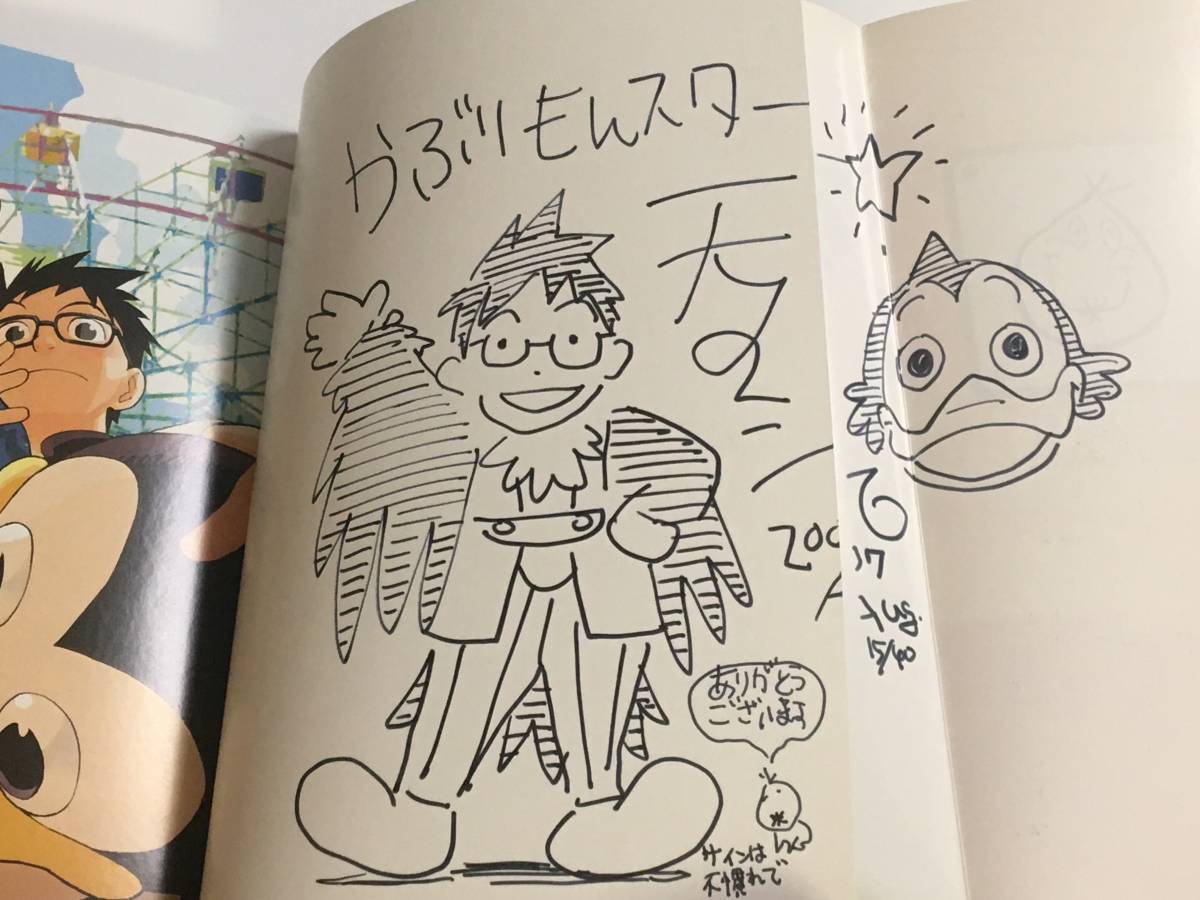 かぶりもんスター
200
17
Aug.
15/40
ありがとう
ございます
サインは
不慣れで